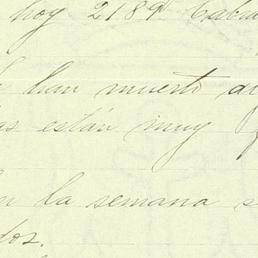 hoy 2189
han muerto
as están muy
la semana s
dos.